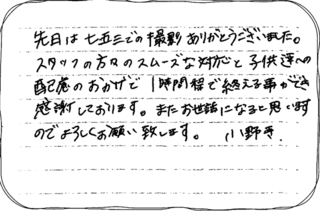 先日は七五三での撮影ありがとうございました。
スタッフの方々のスムーズな対応と子供達への
配慮のおかげで1時間程で終える事ができ
感謝しております。またお世話になると思います
のでよろしくお願い致します。 小野寺